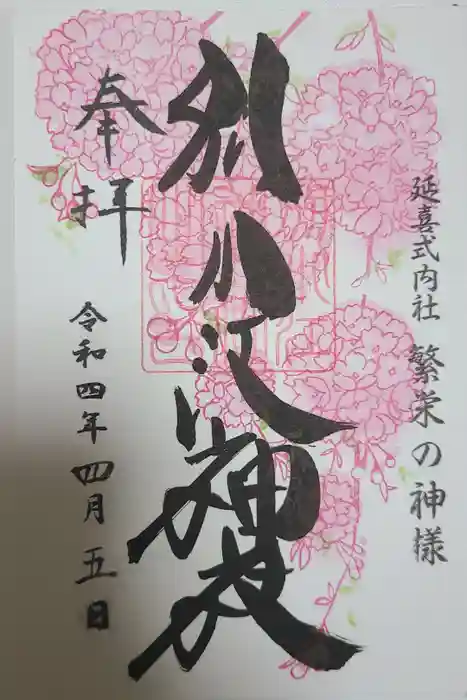 延喜式内社 繁栄の神様
別小江神社
奉拝
令和四年四月五日